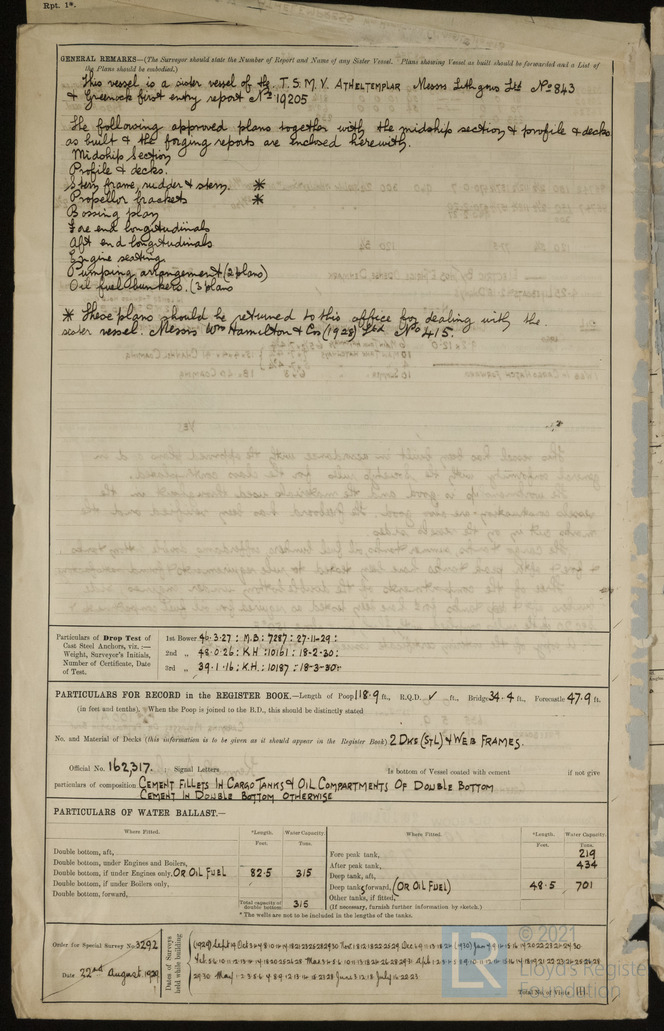 Rpt. 1*.
GENERAL REMARKS—(The Surveyor should state the Number of Report and Name of any Sister Vessel. Plans showing Vessel as built should be forwarded and a List of
the Plans should be embodied.)
This vessel is a sister vessel of the T.S.M.V. ATHELTEMPLAR Messrs Lithgows Ltd No 843
& Greenock first entry report No 19205
The following approved plans together with the midship section & profile & decks
as built & the forging reports are enclosed herewith.
Midship Section
Profile & decks.
Stern frame, rudder & stem. *
Propellor brackets *
Bossing plan
Fore end longitudinals
Aft end longitudinals
Engine seating
Pumping arrangement (2 plans)
Oil fuel bunkers. (3 plans
* These plans should be returned to this office for dealing with the
sister vessel. Messrs Wm Hamilton & Co (1928) Ltd No 415.
Particulars of Drop Test of
Cast Steel Anchors, viz. :—
Weight, Surveyor's Initials,
Number of Certificate, Date
of Test.
1st Bower 46.3.27 : M.B : 7287 : 27-11-29 :
2nd „ 48.0.26 : K.H : 10161 : 18-2-30 :
3rd „ 39.1.16 : K.H. : 10187 : 18-3-30 :
PARTICULARS FOR RECORD in the REGISTER BOOK.—Length of Poop 118.9 ft., R.Q.D. ✓ ft., Bridge 34.4 ft., Forecastle 47.9 ft.
(in feet and tenths). When the Poop is joined to the B.D., this should be distinctly stated
No. and Material of Decks (this information is to be given as it should appear in the Register Book) 2 DKS (STL) & WEB FRAMES.
Official No. 162,317. : Signal Letters Is bottom of Vessel coated with cement if not give
particulars of composition CEMENT FILLETS IN CARGO TANKS & OIL COMPARTMENTS OF DOUBLE BOTTOM
CEMENT IN DOUBLE BOTTOM OTHERWISE
PARTICULARS OF WATER BALLAST.—
Where Fitted. *Length. Water Capacity. Where Fitted. *Length. Water Capacity.
Feet. Tons. Feet. Tons.
Double bottom, aft, Fore peak tank, 219
Double bottom, under Engines and Boilers, After peak tank, 434
Double bottom, if under Engines only, OR OIL FUEL 82.5 315 Deep tank, aft,
Double bottom, if under Boilers only, Deep tanks forward, (OR OIL FUEL) 48.5 701
Double bottom, forward, Other tanks, if fitted,
Total capacity of double bottom 315 (If necessary, furnish further information by sketch.)
* The wells are not to be included in the lengths of the tanks.
Order for Special Survey No. 3292
Date 22nd August, 1929
Dates of Surveys
held while building
Total No. of Visits 111
© 2021
Lloyd's Register
Foundation
LR